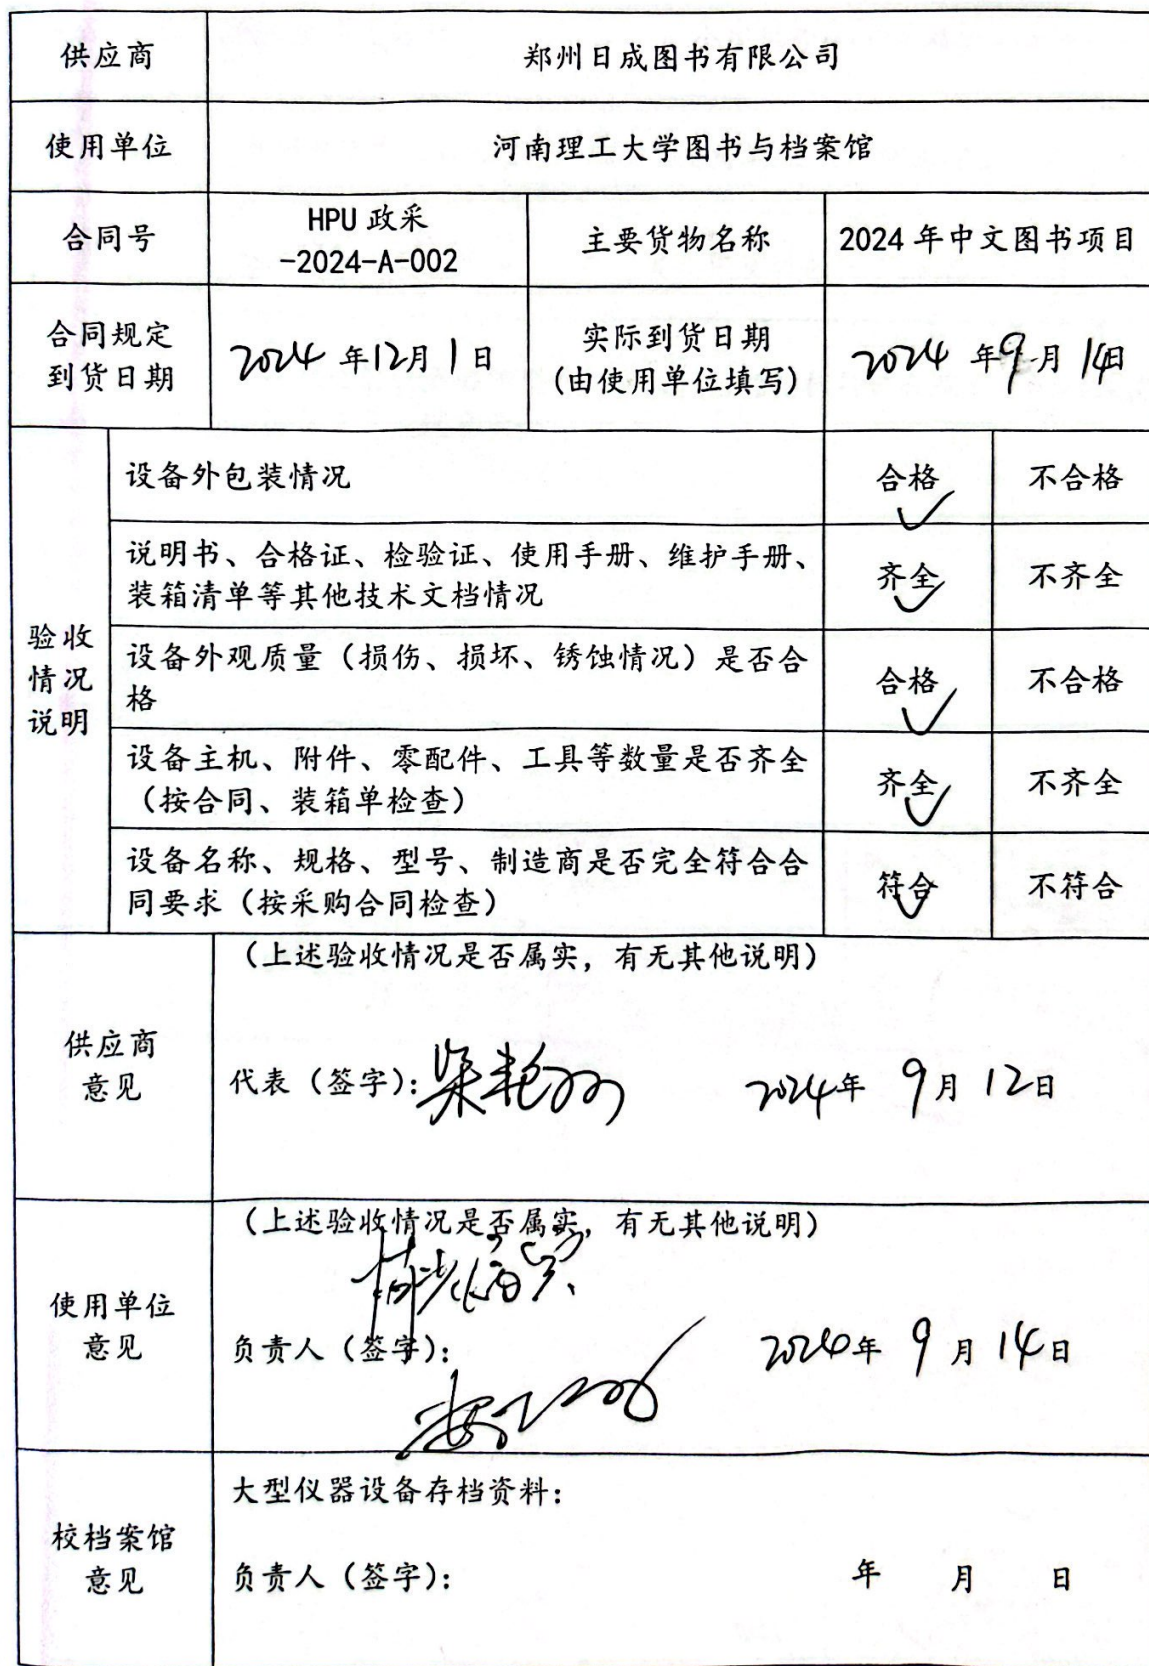 供应商
郑州日成图书有限公司
使用单位
河南理工大学图书与档案馆
合同号
HPU 政采
-2024-A-002
主要货物名称
2024 年中文图书项目
合同规定
到货日期
2024 年12月 1 日
实际到货日期
(由使用单位填写)
2024 年9月 14日
验收
情况
说明
设备外包装情况
合格
不合格
说明书、合格证、检验证、使用手册、维护手册、
装箱清单等其他技术文档情况
齐全
不齐全
设备外观质量（损伤、损坏、锈蚀情况）是否合
格
合格
不合格
设备主机、附件、零配件、工具等数量是否齐全
（按合同、装箱单检查）
齐全
不齐全
设备名称、规格、型号、制造商是否完全符合合
同要求（按采购合同检查）
符合
不符合
供应商
意见
（上述验收情况是否属实，有无其他说明）
代表（签字）：
2024年 9月 12日
使用单位
意见
（上述验收情况是否属实，有无其他说明）
负责人（签字）：
2024年 9月 14日
校档案馆
意见
大型仪器设备存档资料：
负责人（签字）：
年 月 日